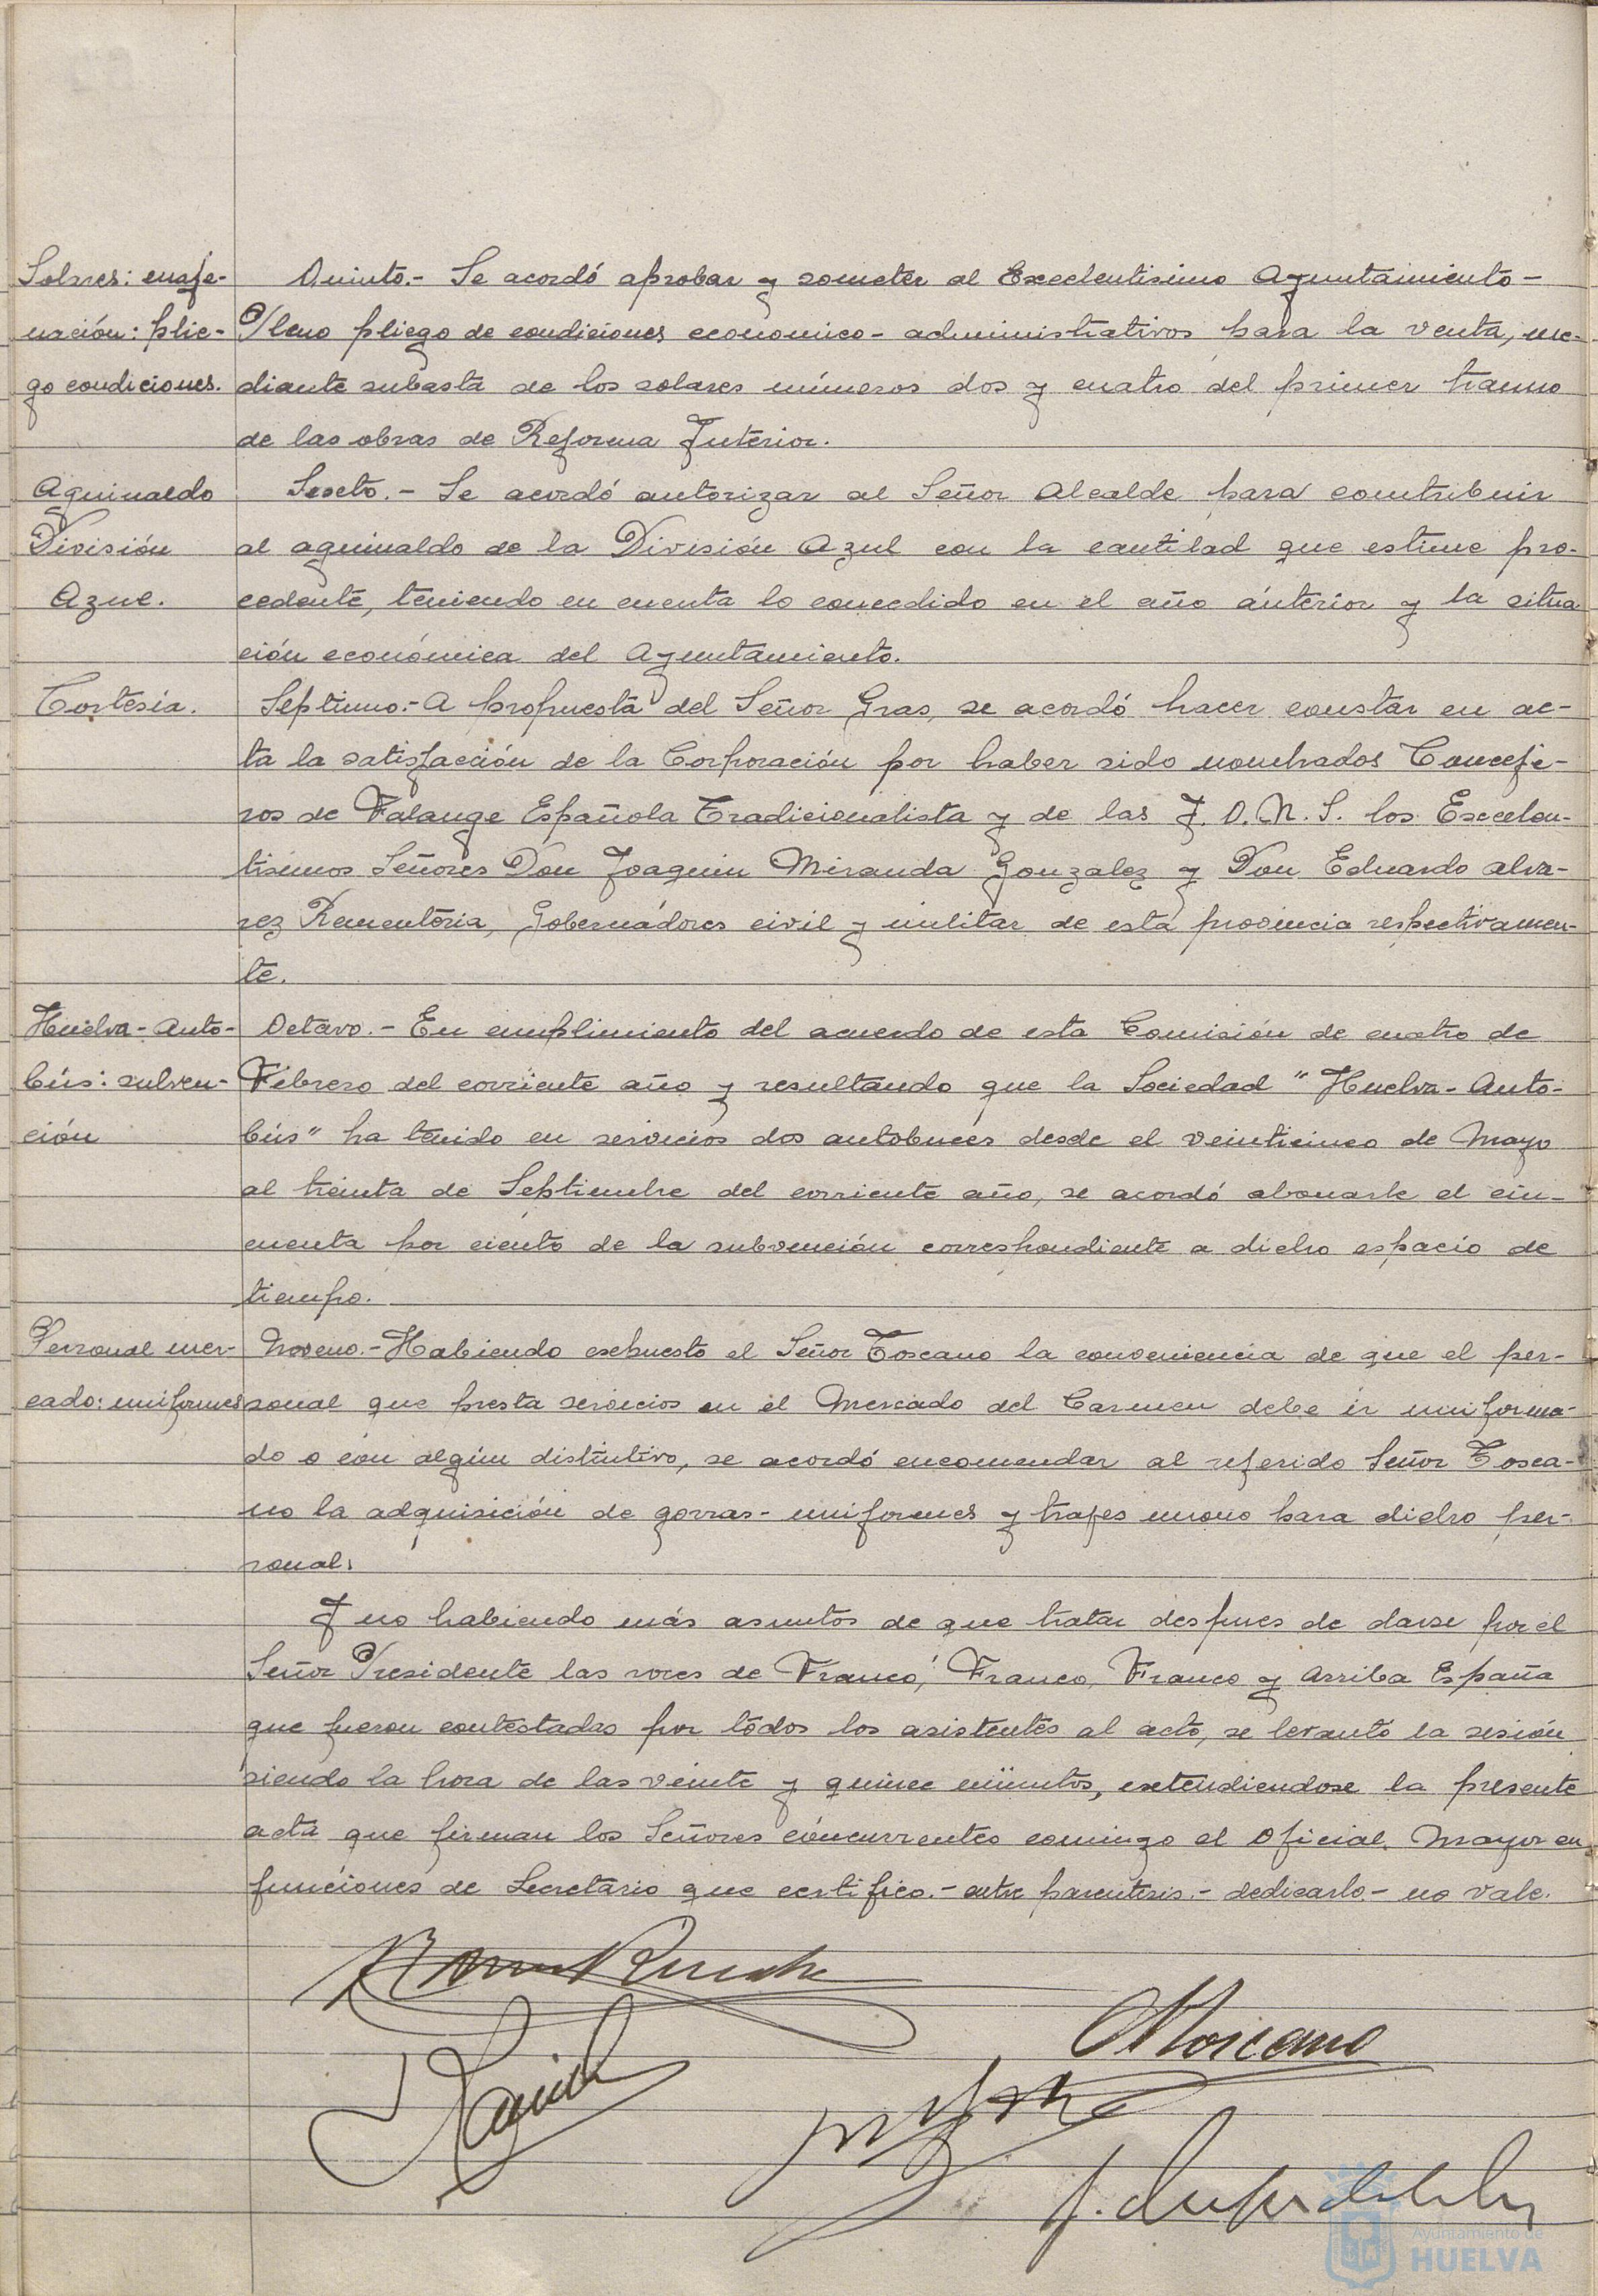 Solares: enaje-
nación: plie-
go condiciones.
Quinto.- Se acordó aprobar y someter al Excelentisimo Ayuntamiento-
Pleno pliego de condiciones economico-administrativos para la venta, me-
diante subasta de los solares números dos y cuatro del primer tramo
de las obras de Reforma Interior.
Aguinaldo
División
Azul.
Sexto.- Se acordó autorizar al Señor Alcalde para contribuir
al aguinaldo de la División Azul con la cantidad que estime pro-
cedente, teniendo en cuenta lo concedido en el año anterior y la situa
ción económica del Ayuntamiento.
Cortesia.
Septimo.- A propuesta del Señor Gras, se acordó hacer constar en ac-
ta la satisfacción de la Corporación por haber sido nombrados Conceje-
ros de Falange Española Tradicionalista y de las J. O. N. S. los Excelen-
tisimos Señores Don Joaquin Miranda Gonzalez y Don Eduardo Alva-
rez Rementeria, Gobernadores civil y militar de esta provincia respectivamen-
te.
Huelva-Auto-
bús: subven-
ción
Octavo.- En cumplimiento del acuerdo de esta Comisión de cuatro de
Febrero del corriente año y resultando que la Sociedad "Huelva-Auto-
bús" ha tenido en servicios dos autobuces desde el veinticinco de Mayo
al treinta de Septiembre del corriente año, se acordó abonarle el cin-
cuenta por ciento de la subvención correspondiente a dicho espacio de
tiempo.
Personal mer-
cado: uniformes
Noveno.- Habiendo expuesto el Señor Toscano la conveniencia de que el per-
sonal que presta servicios en el Mercado del Carmen debe ir uniforma-
do o con algún distintivo, se acordó encomendar al referido Señor Tosca-
no la adquisición de gorras-uniformes y trajes mono para dicho per-
sonal.
Y no habiendo más asuntos de que tratar despues de darse por el
Señor Presidente las voces de Franco, Franco, Franco y Arriba España
que fueron contestadas por todos los asistentes al acto, se levantó la sesión
siendo la hora de las veinte y quince minutos, extendiendose la presente
acta que firman los Señores concurrentes conmigo el Oficial Mayor en
funciones de Secretario que certifico.- entre parentesis.- dedicarlo.- no vale.
Toscano
Ayuntamiento de
HUELVA